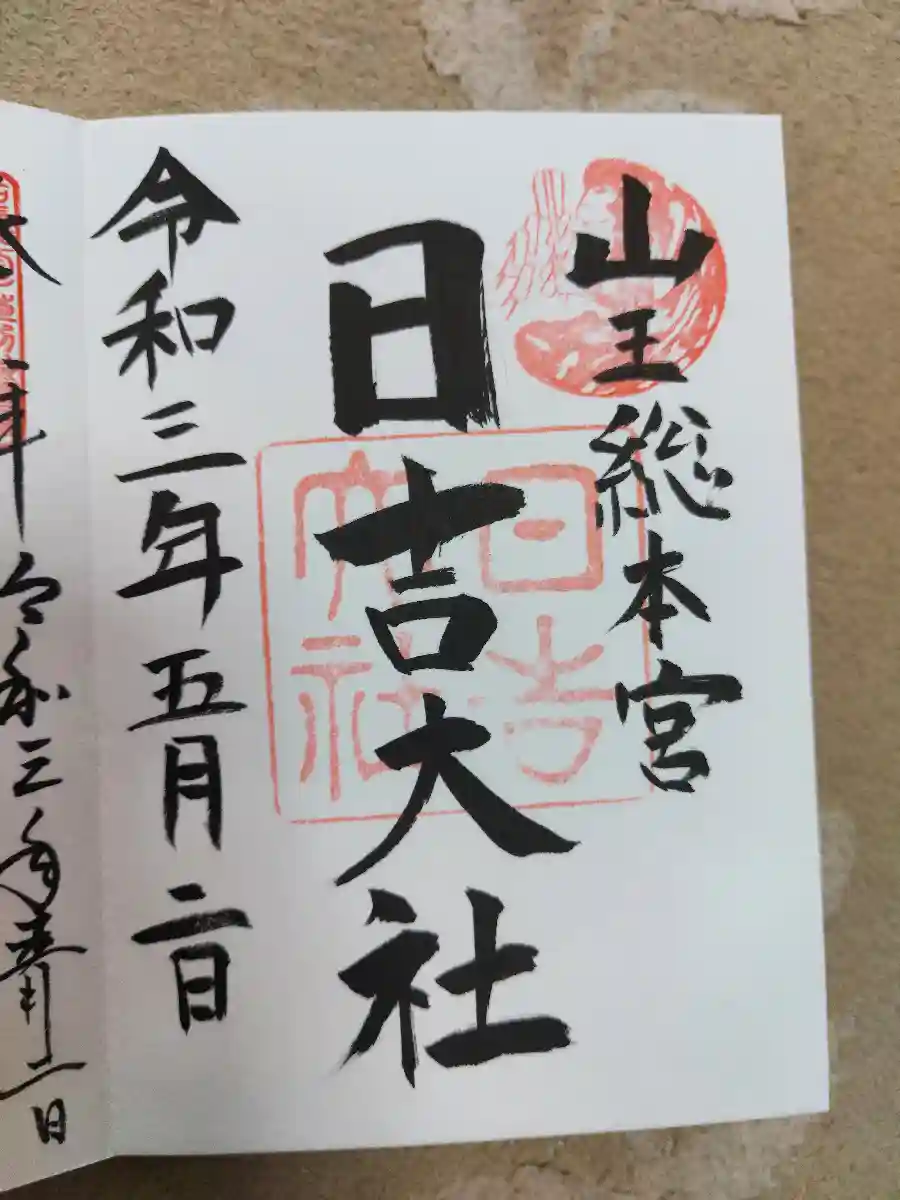 山王総本宮
日吉大社
日吉大社
令和三年五月二日
令和三年
二日